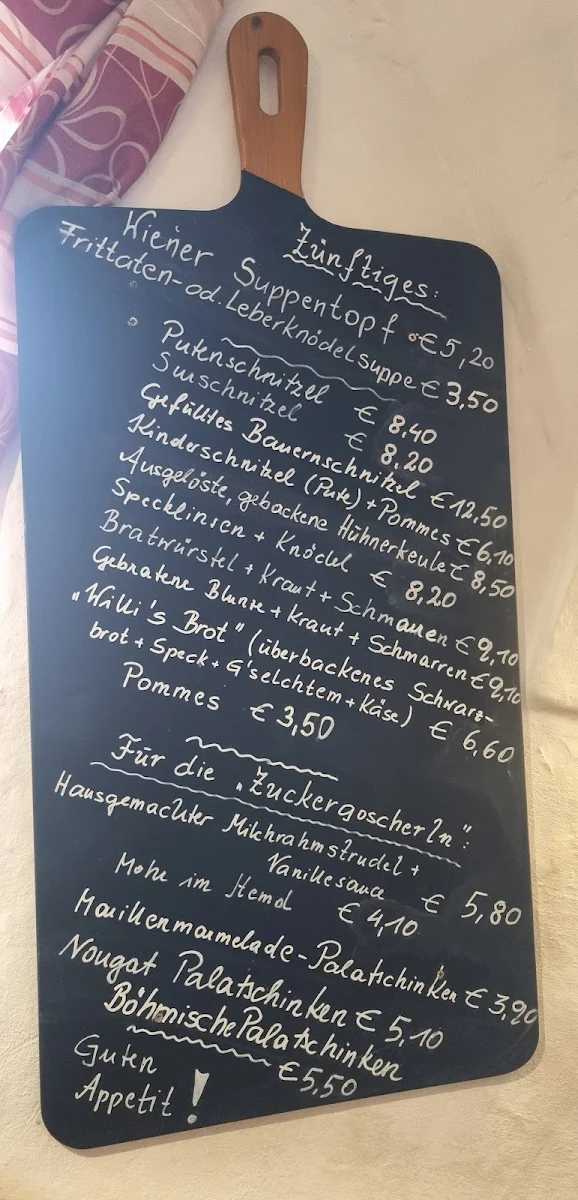 Zünftiges:
Wiener Suppentopf €5,20
Frittaten- od. Leberknödelsuppe € 3,50
Putenschnitzel € 8.40
Surschnitzel € 8.20
Gefülltes Bauernschnitzel € 12.50
Kinderschnitzel (Pute) + Pommes € 6,10
Ausgelöste, gebackene Hühnerkeule € 8,50
Specklinsen + Knödel € 8,20
Bratwürstel + Kraut + Schmarren € 9,10
Gebratene Blunze + Kraut + Schmarren € 9,10
„Willi's Brot" (überbackenes Schwarz-
brot + Speck + G'selchtem + Käse) € 6,60
Pommes € 3,50
Für die „Zuckergoscherln":
Hausgemachter Milchrahmstrudel +
Vanillesauce € 5,80
Mohr im Hemd € 4,10
Marillenmarmelade-Palatschinken € 3,90
Nougat Palatschinken € 5,10
Böhmische Palatschinken
€ 5,50
Guten
Appetit!